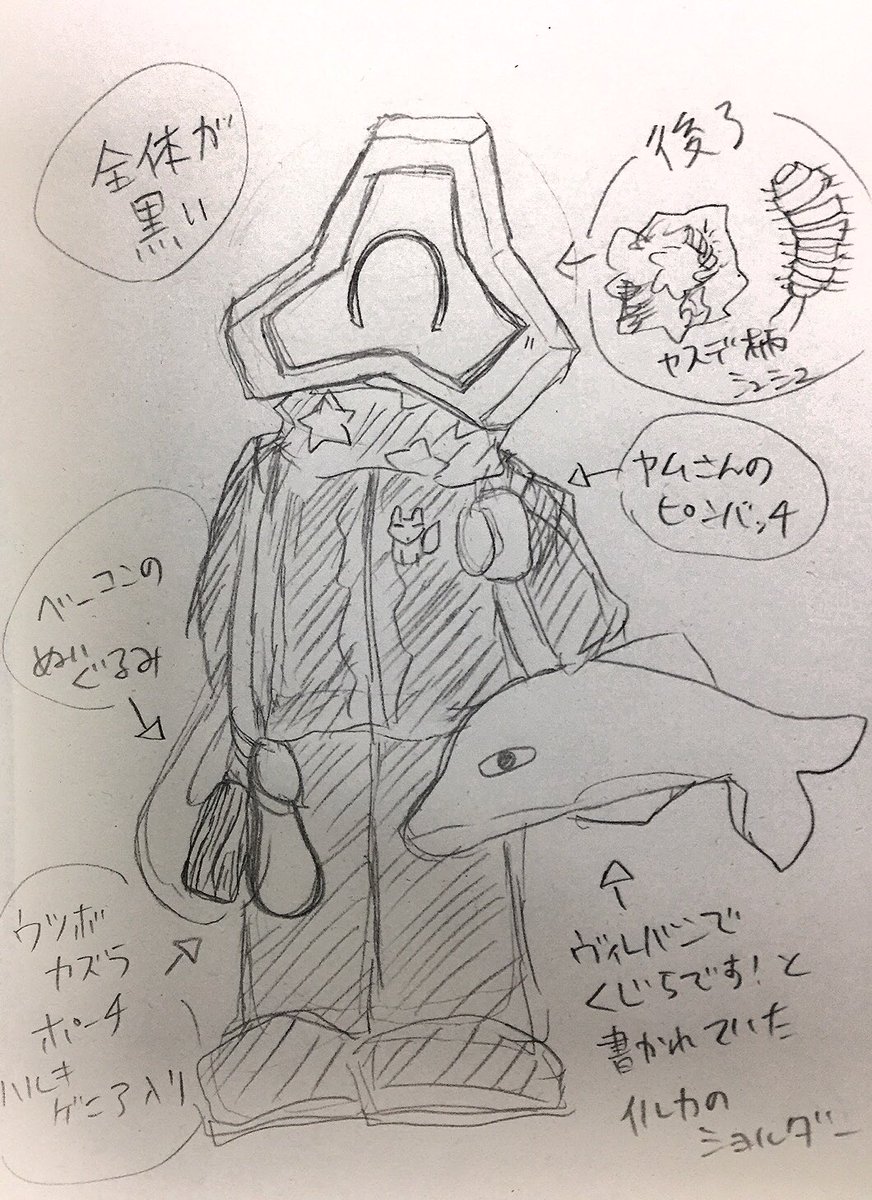 全体が
黒い
後ろ
ヤスデ柄
シュシュ
ヤムさんの
ピンバッチ
ベーコンの
ぬいぐるみ
ウツボ
カズラ
ポーチ
ハルキ
ゲニア入り
ヴィレバンで
くじらです!と
書かれていた
イルカの
ショルダー